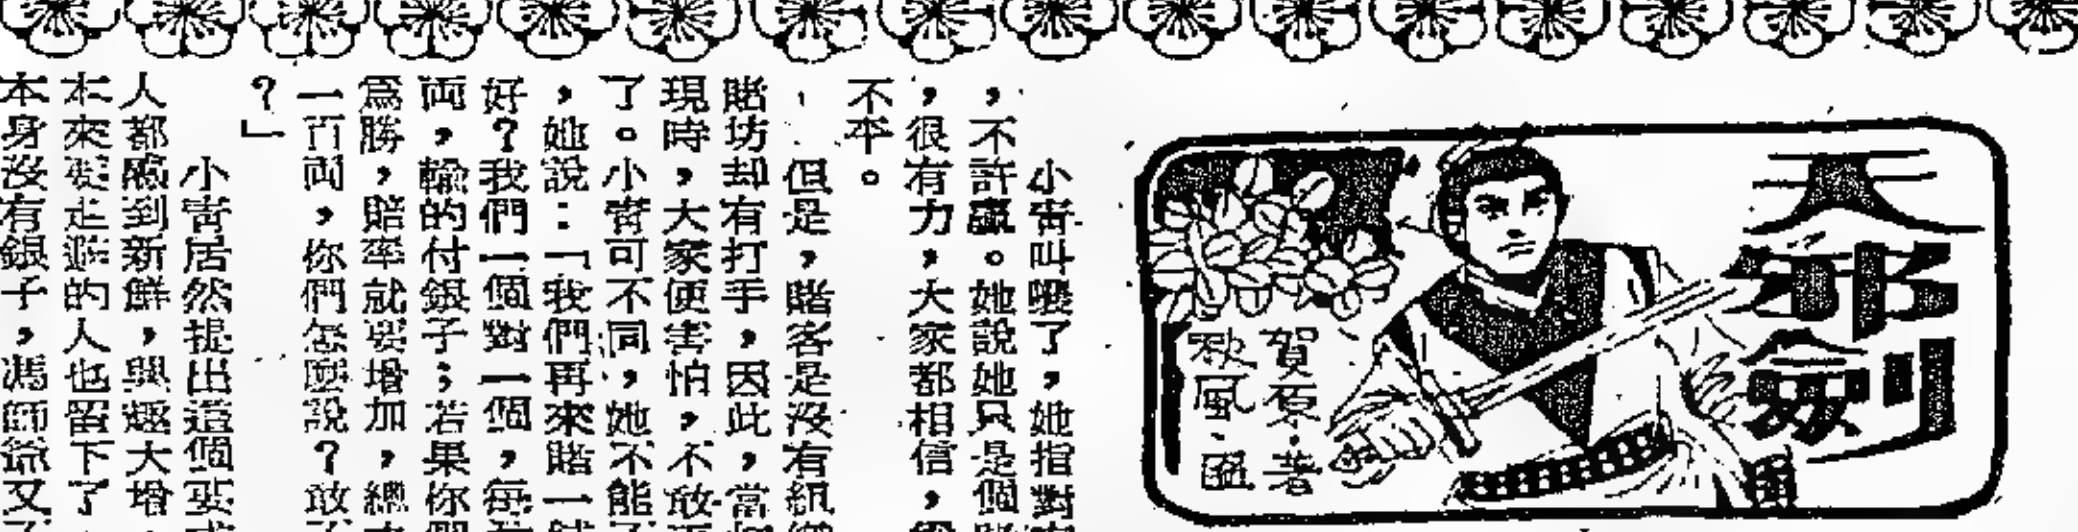 天邪劍
賀原·著
秋風·圖
小青叫嚷了，她指對
，不許贏。她說她只是個
，很有力，大家都相信，
不平。
但是，賭客是沒有組
賭坊却有打手，因此，當
現時，大家便害怕，不敢
了。小青可不同，她不能
，她說：「我們再來賭一
好？我們一個對一個，每
両，輸的付銀子；若果你們
為勝，賠率就要增加，總
一百両，你們怎麼說？敢
？」
小青居然提出這個要
人都感到新鮮，興趣大增，
本來要走避的人也留下了，
本身沒有銀子，馮師爺又